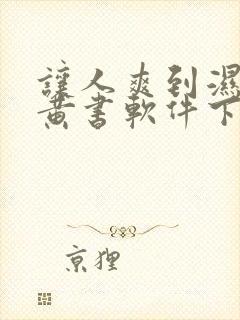 讓人爽到濕
黃書軟件下
京狸